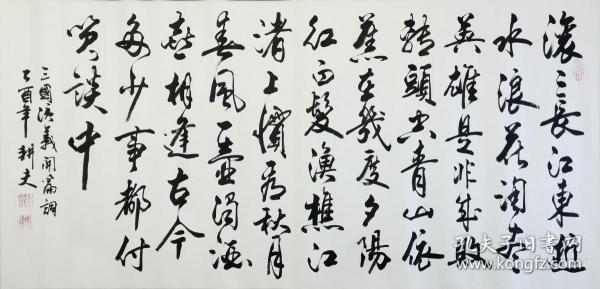 滚滚长江东逝
水浪花淘尽
英雄是非成败
转头空青山依
旧在几度夕阳
红白发渔樵江
渚上惯看秋月
春风一壶浊酒
喜相逢古今
多少事都付
笑谈中
三國演義開篇詞
乙酉年 耕夫
孔夫子旧书网
www.kongfz.com